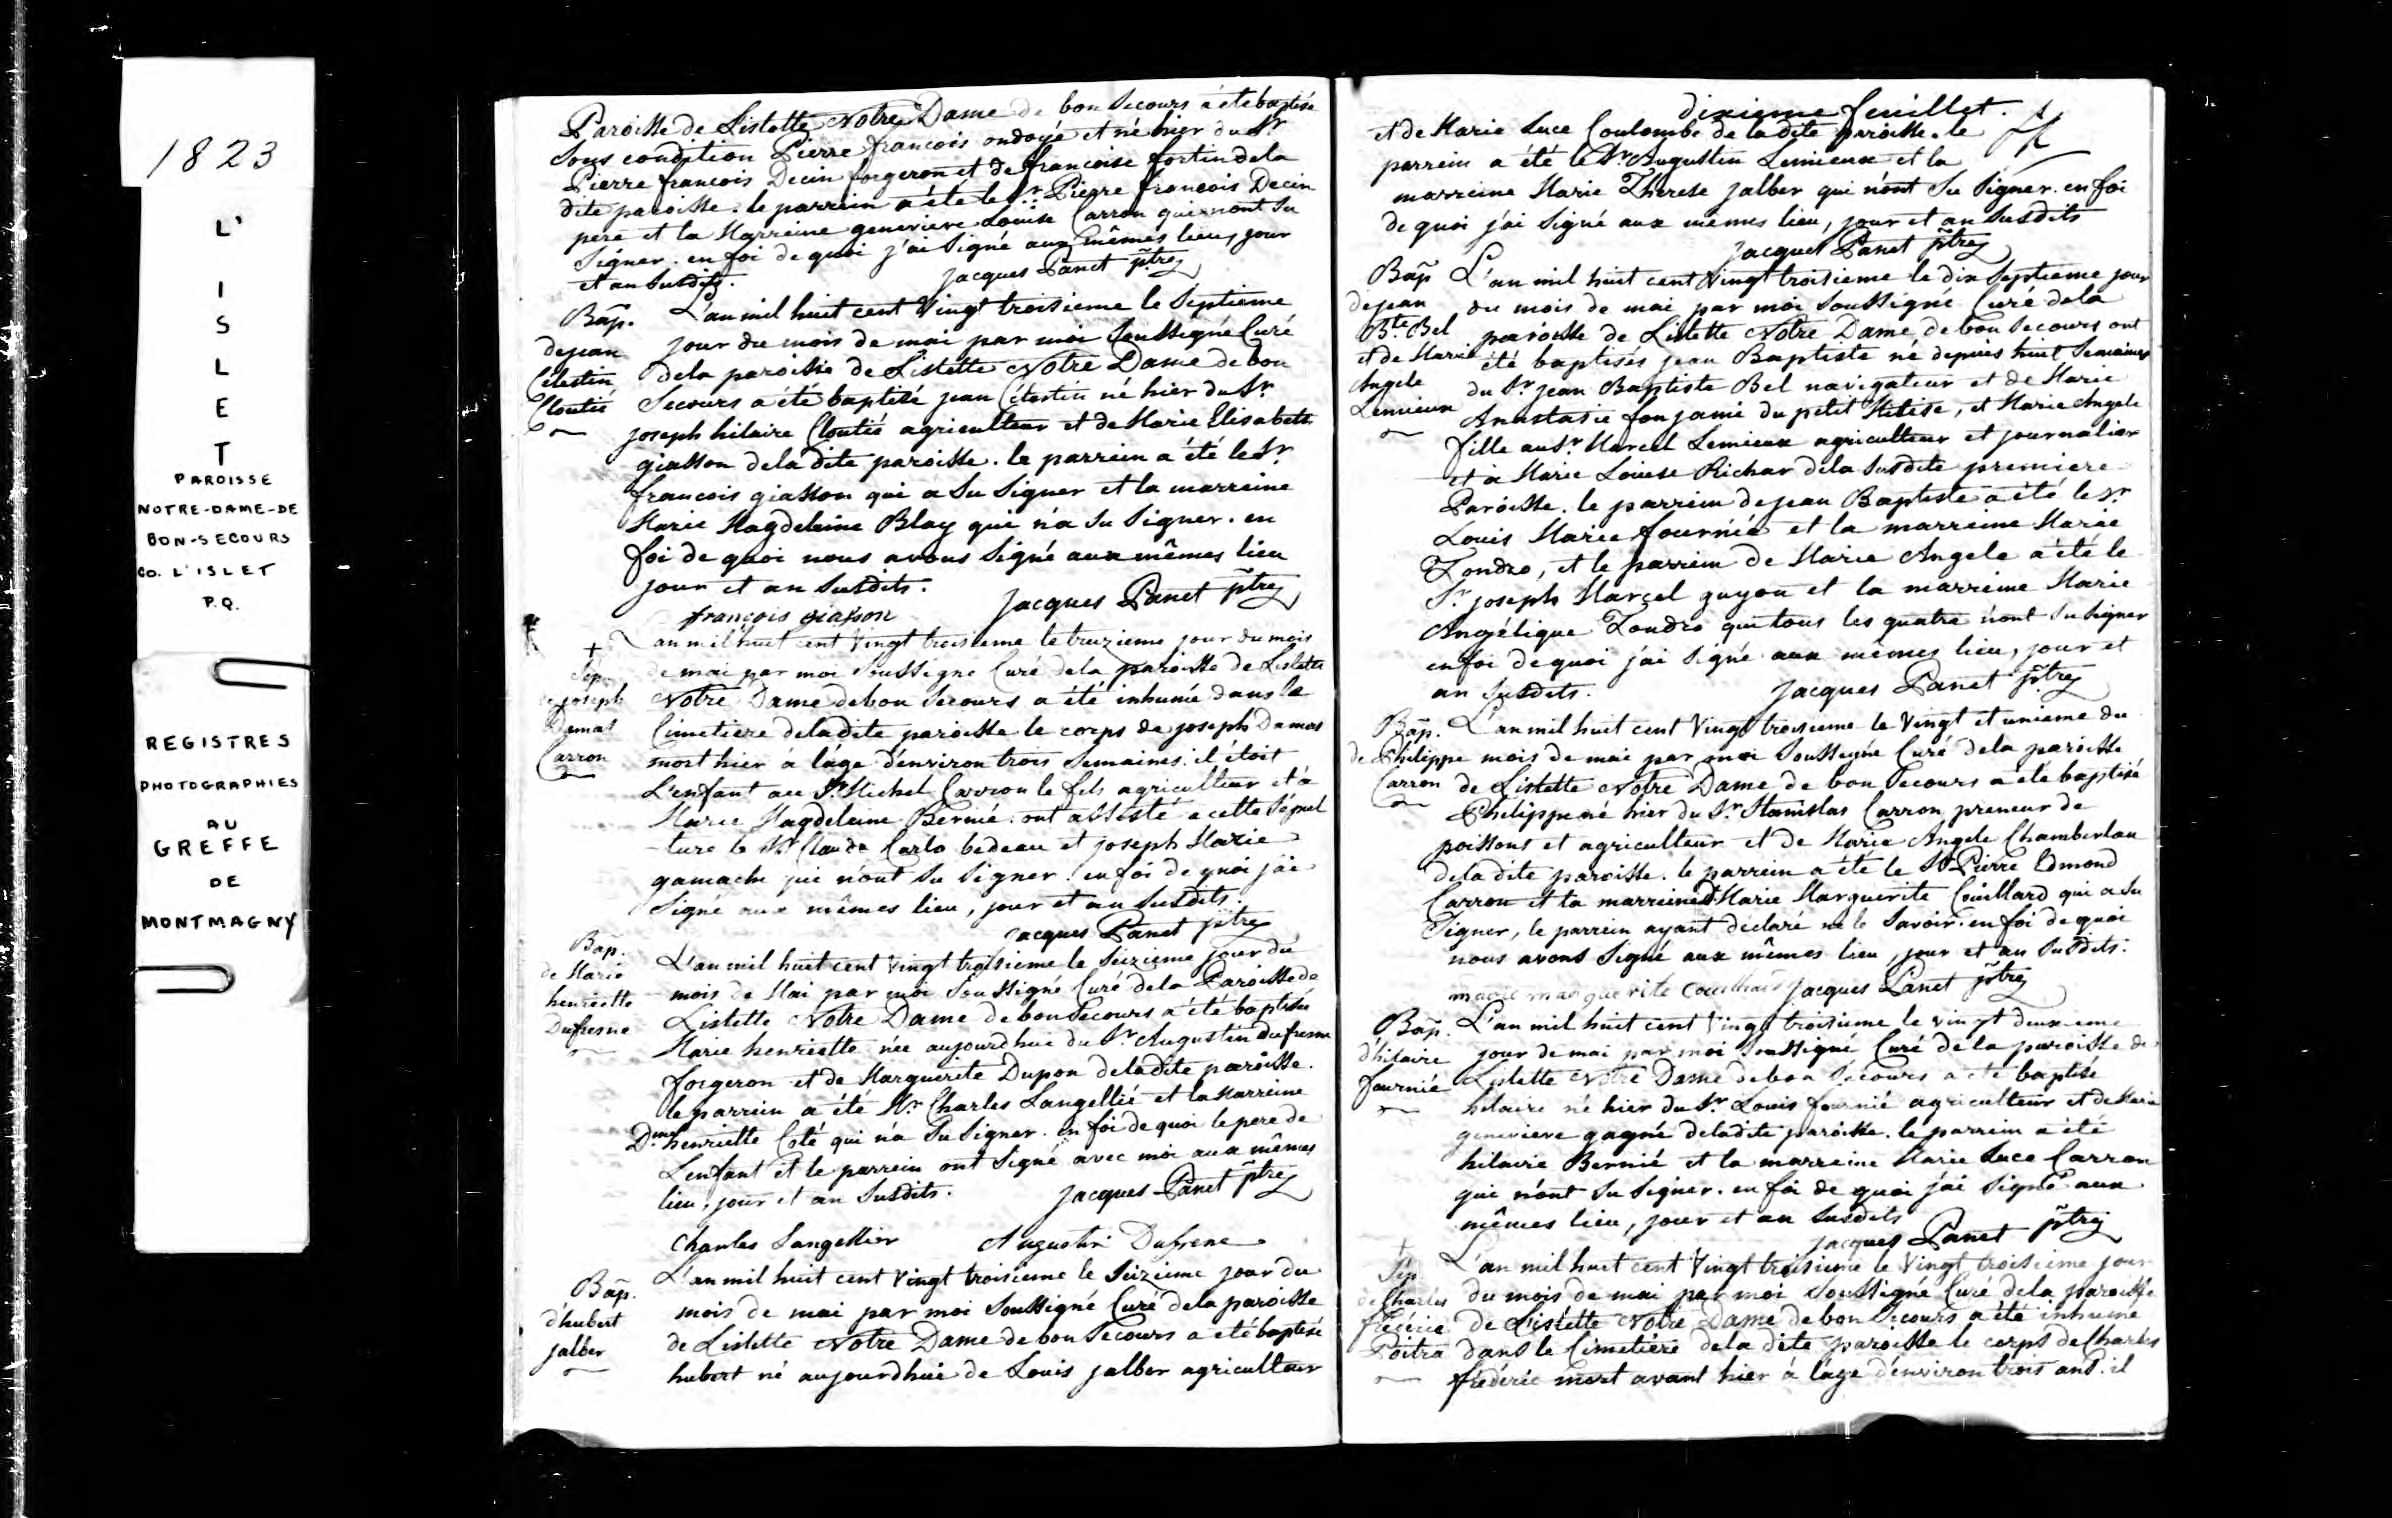 1823
L'
I
S
L
E
T
PAROISSE
NOTRE-DAME-DE
BON-SECOURS
CO. L'ISLET
P.Q.
REGISTRES
PHOTOGRAPHIES
AU
GREFFE
DE
MONTMAGNY
Paroisse de Lislette Notre Dame de bon Secours a été baptisé
Sous condition Pierre francois ondoyé et né hier du Sr.
Pierre francois Decin forgeron et de francoise fortin dela
dite paroisse. le parrein a été le Sr. Pierre francois Decin
pere et la Marreine genevieve Louise Carron qui n'ont su
Signer. en foi de quoi j'ai Signé aux mêmes lieu, jour
et an Susdits.
Jacques Panet ptre
Bap.
de jean
Célestin
Cloutié
L'an mil huit cent Vingt troisieme le Septieme
jour du mois de mai par moi Soussigné Curé
dela paroisse de Lislette Notre Dame de bon
Secours a été baptisé jean Célestin né hier du Sr.
joseph hilaire Cloutié agriculteur et de Marie Elisabeth
giasson dela dite paroisse. le parrein a été le Sr.
francois giasson qui a Su Signer et la marreine
Marie Magdeleine Blay qui n'a Su Signer. en
foi de quoi nous avons Signé aux mêmes lieu
jour et an Susdits.
Jacques Panet ptre
françois giasson
+
Sep.
de joseph
Damas
Carron
L'an mil huit cent Vingt troisieme le treizieme jour du mois
de mai par moi Soussigné Curé dela paroisse de Lislette
Notre Dame de bon Secours a été inhumé dans le
Cimetiere dela dite paroisse le corps de joseph Damas
mort hier à l'age d'environ trois Semaines. il étoit
L'enfant au Sr. Michel Carron le fils agriculteur et à
Marie Magdeleine Bernié. ont assisté a cette Sépul
-ture le Sr. Claude Carlo bedeau et joseph Marie
gamache qui n'ont Su Signer. en foi de quoi j'ai
Signé aux mêmes lieu, jour et an Susdits.
Jacques Panet ptre
Bap.
de Marie
henriette
Dufresne
L'an mil huit cent Vingt troisieme le Seizieme jour du
mois de Mai par moi Soussigné Curé dela Paroisse de
Lislette Notre Dame de bon Secours a été baptisée
Marie henriette née aujourdhui du Sr. Augustin Dufresne
forgeron et de Marguerite Dupon dela dite paroisse.
le parrein a été Mr. Charles Langellié et la Marreine
Dme. henriette Coté qui n'a Su Signer. en foi de quoi le pere de
L'enfant et le parrein ont Signé avec moi aux mêmes
lieu, jour et an Susdits.
Jacques Panet ptre
Charles Langellier Augustin Dufrene
Bap.
d'hubert
jalber
L'an mil huit cent Vingt troisieme le Seizieme jour du
mois de mai par moi Soussigné Curé dela paroisse
de Lislette Notre Dame de bon Secours a été baptisé
hubert né aujourdhui de Louis jalber agriculteur
dixieme feuillet.
et de Marie Luce Coulombe de la dite paroisse. le
parrein a été le Sr. Augustin Lemieux et la
marreine Marie Therese jalber qui n'ont Su Signer. en foi
de quoi j'ai Signé aux memes lieu, jour et an Susdits
Jacques Panet ptre
Bap
de jean
Bte. Bel
et de Marie
Angele
Lemieux
L'an mil huit cent Vingt troisieme le dix Septieme jour
du mois de mai par moi Soussigné Curé dela
paroisse de Lislette Notre Dame de bon Secours ont
été baptisés jean Baptiste né depuis huit Semaines
du Sr. jean Baptiste Bel navigateur et de Marie
Anastasie fonjamie du petit Metise, et Marie Angele
fille au Sr. Marcel Lemieux agriculteur et journalier
et à Marie Louise Richar dela Susdite premiere
Paroisse. le parrein de jean Baptiste a été le Sr.
Louis Marie fournié et la marreine Marie
Tondro, et le parrein de Marie Angele a été le
Sr. joseph Marcel guyon et la marreine Marie
Angélique Tondro qui tous les quatre n'ont Su Signer
en foi de quoi j'ai Signé aux mêmes lieu, jour et
an Susdits.
Jacques Panet ptre
Bap.
de Philippe
Carron
L'an mil huit cent Vingt troisieme le Vingt et unieme du
mois de mai par moi Soussigné Curé dela paroisse
de Lislette Notre Dame de bon Secours a été baptisé
Philippe né hier du Sr. Stanislas Carron preneur de
poissons et agriculteur et de Marie Angele Chamberlan
dela dite paroisse. le parrein a été le Sr. Pierre Edmond
Carron et la marreine Marie Marguerite Couillard qui a Su
Signer, le parrein ayant déclaré ne le Savoir. en foi de quoi
nous avons Signé aux mêmes lieu, jour et an Susdits.
marie marguerite Jacques Panet ptre
Bap.
d'hilaire
fournié
L'an mil huit cent Vingt troisieme le vingt deuxieme
jour de mai par moi Soussigné Curé de la paroisse de
Lislette Notre Dame de bon Secours a été baptisé
hilaire né hier du Sr. Louis fournié agriculteur et de Marie
genevieve gagné dela dite paroisse. le parrein a été
hilaire Bernié et la marreine Marie Luce Carron
qui n'ont Su Signer. en foi de quoi j'ai Signé aux
mêmes lieu, jour et an Susdits
Jacques Panet ptre
+
Sep
de Charles
Frédéric
Poitra
L'an mil huit cent Vingt troisieme le Vingt troisieme jour
du mois de mai par moi Soussigné Curé dela paroisse
de Lislette Notre Dame de bon Secours a été inhumé
dans le Cimetiere dela dite paroisse le corps de Charles
frédéric mort avant hier à l'age d'environ trois ans. il